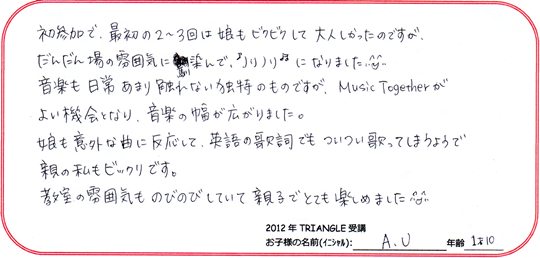 初参加で、最初の2〜3回は娘もビクビクして大人しかったのですが、
だんだん場の雰囲気に染んで、♪ノリノリ♬になりました
音楽も日常あまり触れない独特のものですが、Music Togetherが
よい機会となり、音楽の幅が広がりました。
娘も意外な曲に反応して、英語の歌詞でもついつい歌ってしまうようで
親の私もビックリです。
教室の雰囲気ものびのびしていて親子でとても楽しめました
2012年 TRIANGLE 受講
お子様の名前(イニシャル): A.U 年齢 1才10